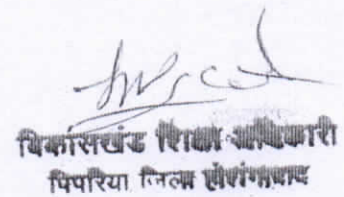 विकासखंड शिक्षा अधिकारी
पिपरिया जिला होशंगाबाद